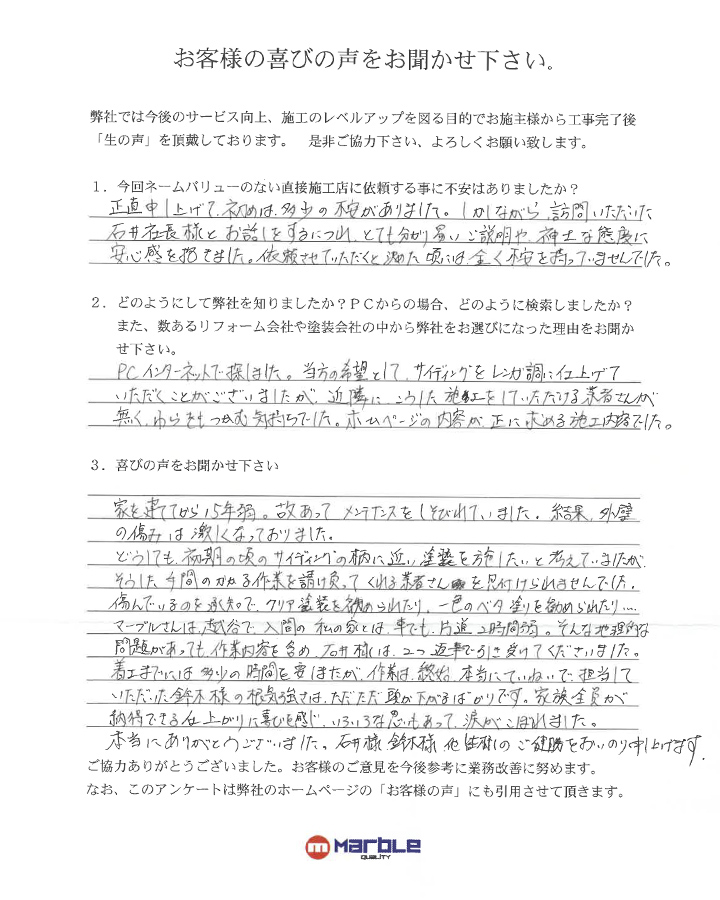 お客様の喜びの声をお聞かせ下さい。
弊社では今後のサービス向上、施工のレベルアップを図る目的でお施主様から工事完了後
「生の声」を頂戴しております。 是非ご協力下さい、よろしくお願い致します。
1.今回ネームバリューのない直接施工店に依頼する事に不安はありましたか?
正直申し上げて、初めは、多少の不安がありました。しかしながら、訪問いただいた
石井社長様とお話しをするにつれ、とても分かり易いご説明や、紳士な態度に
安心感を抱きました。依頼させていただくと決めた頃には、全く不安を持っていませんでした。
2.どのようにして弊社を知りましたか?PCからの場合、どのように検索しましたか?
また、数あるリフォーム会社や塗装会社の中から弊社をお選びになった理由をお聞か
せ下さい。
PCインターネットで探しました。当方の希望として、サイディングをレンガ調に仕上げて
いただくことがございましたが、近隣に、こうした施工をしていただける業者さんが
無く、わらをもつかむ気持ちでした。ホームページの内容が、正に求める施工内容でした。
3.喜びの声をお聞かせ下さい
家を建ててから15年弱。故あってメンテナンスをしそびれていました。結果、外壁
の傷みは激しくなっておりました。
どうしても、初期の頃のサイディングの柄に近い塗装を施したいと考えていましたが、
そうした手間のかかる作業を請け負ってくれる業者さんを見付けられませんでした。
傷んでいるのを承知で、クリア塗装を勧められたり、一色のベタ塗りを勧められたり….
マーブルさんは、越谷で、入間の私の家とは、車でも、片道2時間弱。そんな地理的な
問題があっても、作業内容を含め、石井様は、二つ返事で引き受けてくださいました。
着工までには多少の時間を要したが、作業は、終始、本当にていねいで、担当して
いただいた鈴木様の根気強さは、ただただ頭が下がるばかりです。家族全員が
納得できる仕上がりに喜びを感じ、いろいろな思いもあって、涙がこぼれました。
本当にありがとうございました。石井様、鈴木様、他のご健勝をおいのり申し上げます.
ご協力ありがとうございました。お客様のご意見を今後参考に業務改善に努めます。
なお、このアンケートは弊社のホームページの「お客様の声」にも引用させて頂きます。
m MARBLE
QUALITY